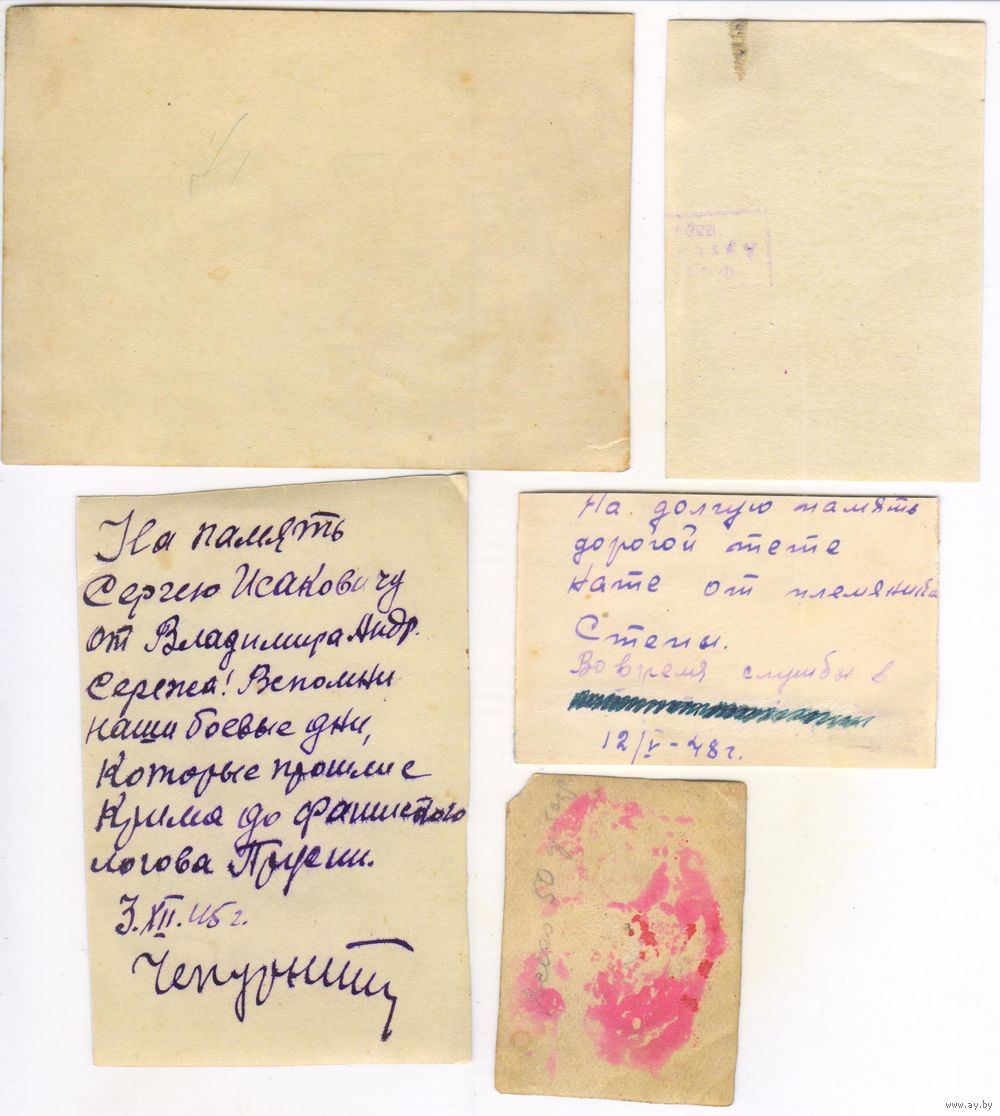 На память
Сергею Исаковичу
от Владимира Андр.
Сережа! Вспомни
наши боевые дни,
которые прошли с
Крима до фашистого
логова Прусии.
3.XII.45 г.
На долгую память
дорогой тете
Нате от племяника
Степы.
Во время службы в
12/V-48 г.
50
www.ay.by